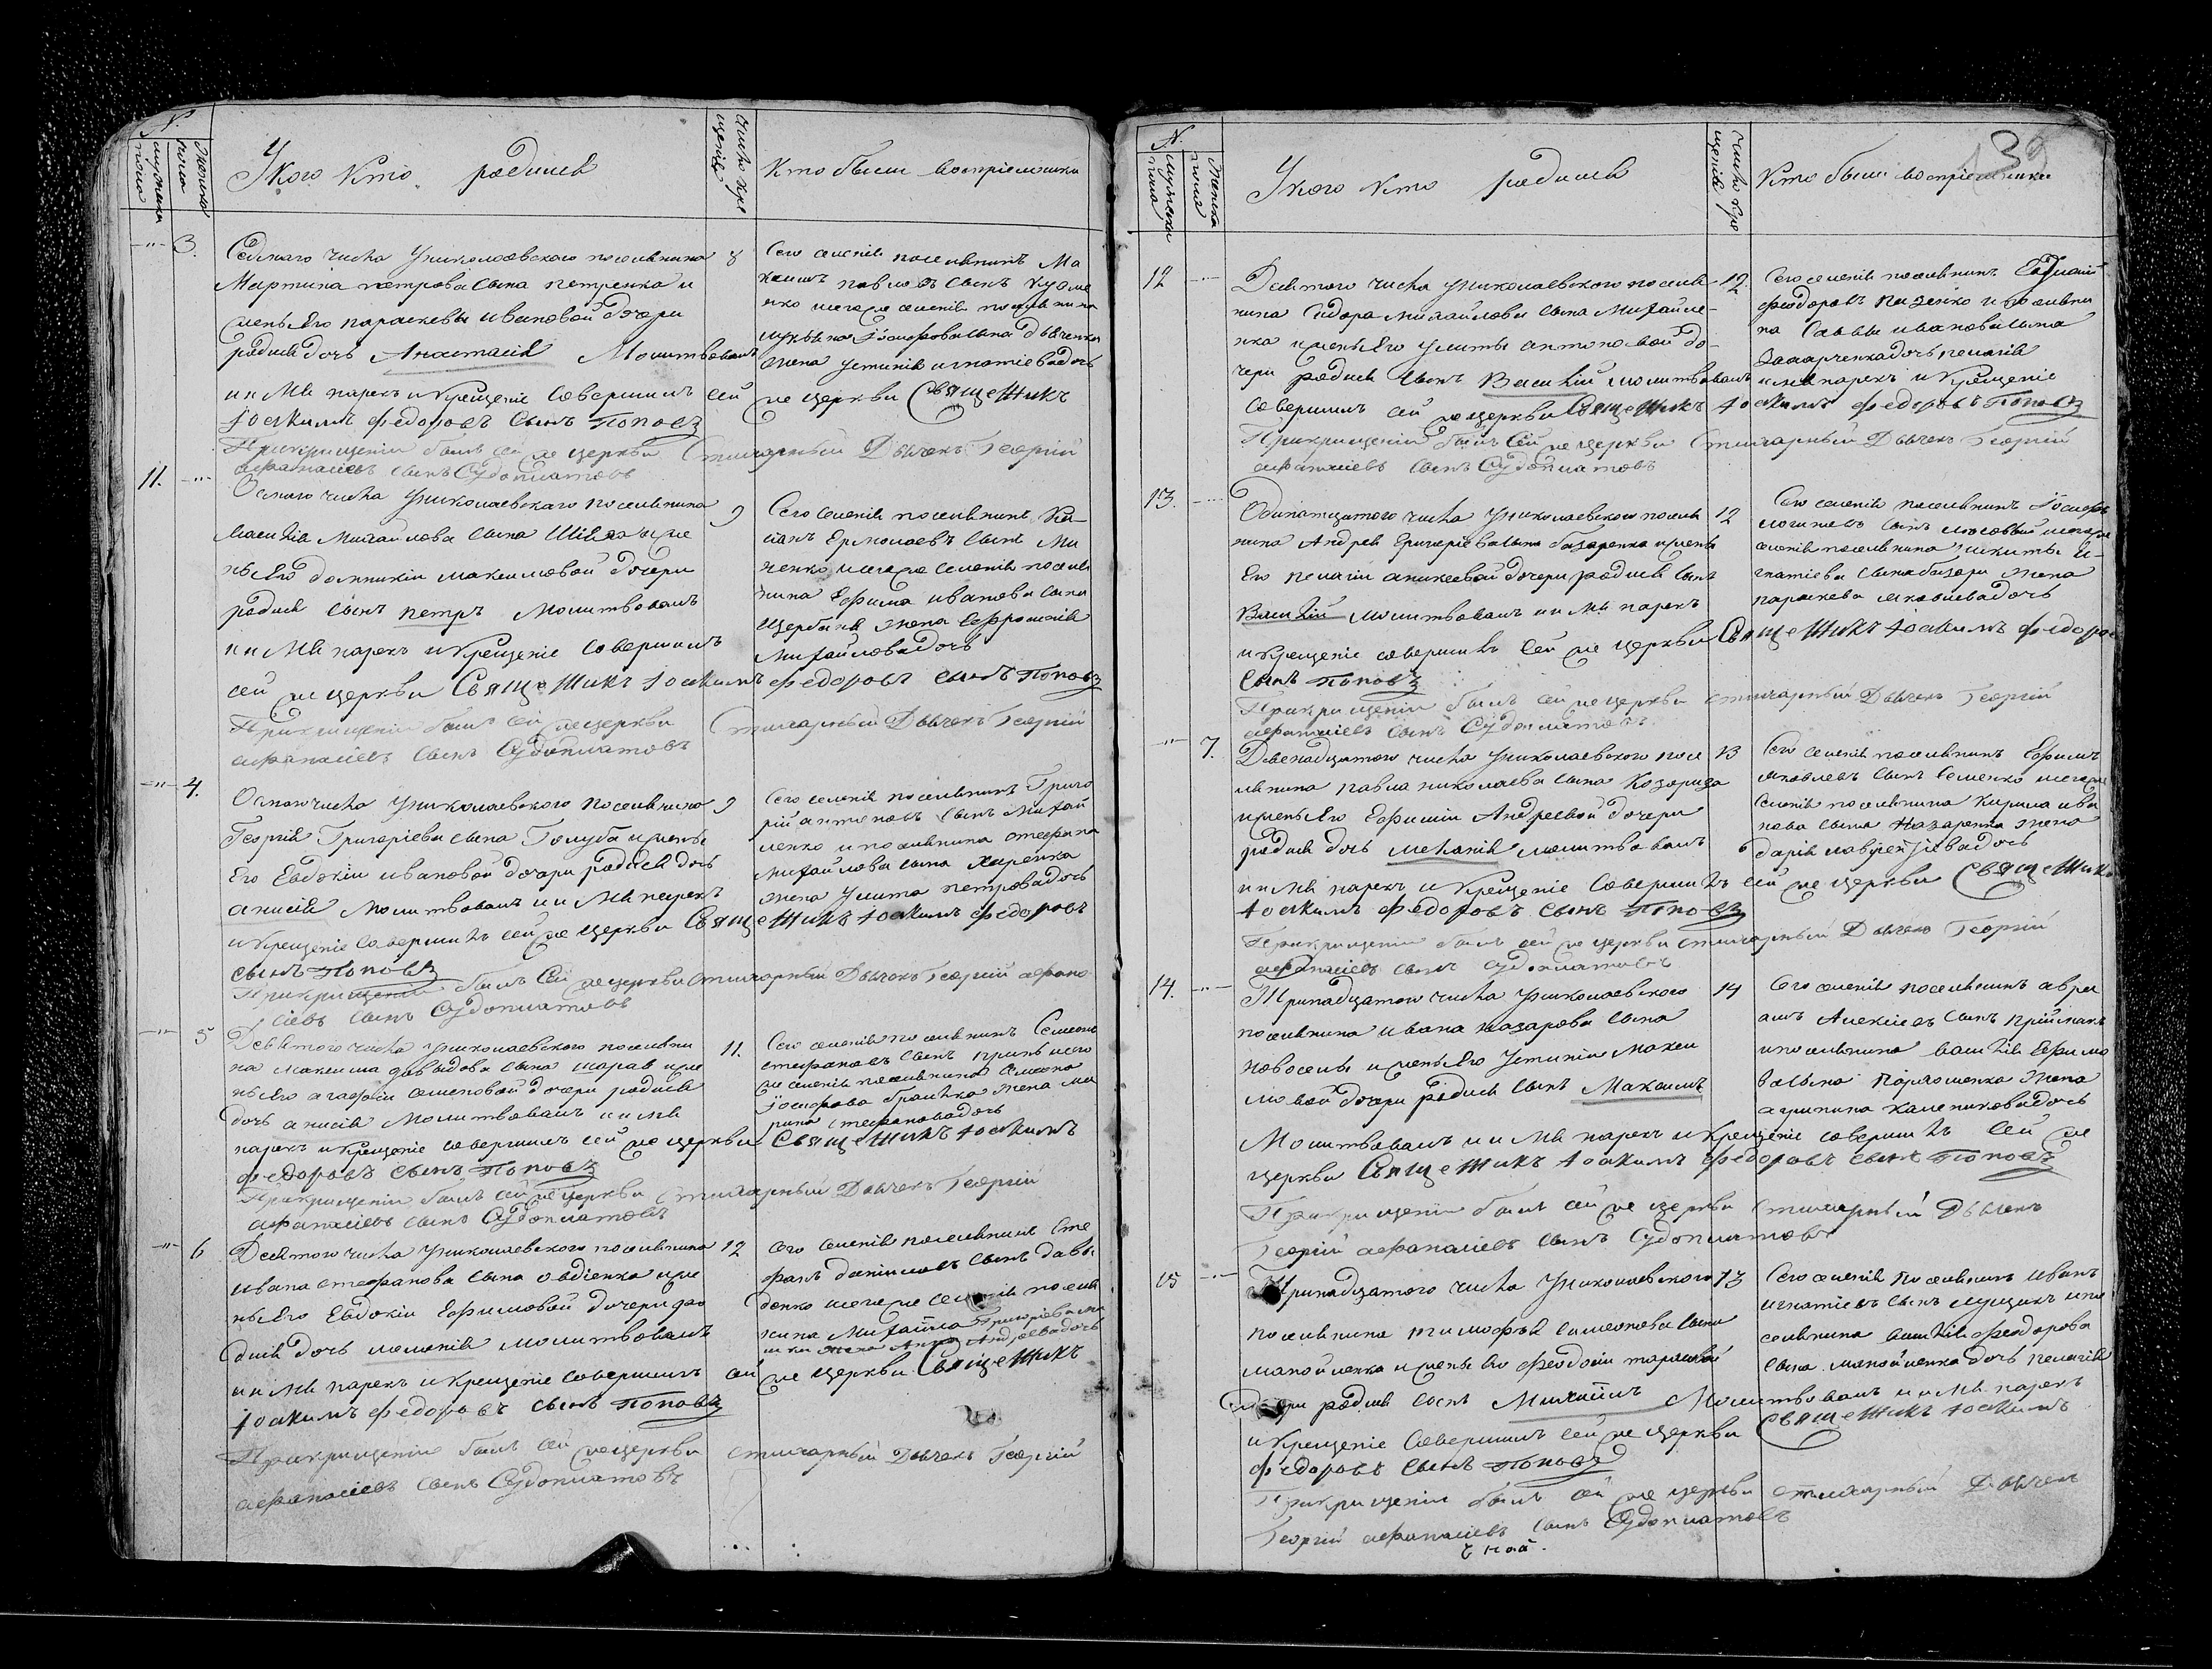 N.
мужеска пола
женска пола
У кого кто родился
число крещенія
Кто были воспріемники
3.
Седмаго числа у николаевскаго поселянина
Мартина петрова сына петренка и
жены его параскевы ивановой дочери
родися дочь Анастасія Молитвовалъ
и имя нарекъ и крещеніе совершилъ сей же церкви Священникъ
Іоакимъ федоровъ сынъ Поповъ
При крещеніи былъ сей же церкви Стихарный Дьячекъ Георгій
афанасіевъ сынъ Судоплатовъ
8
Сего селенія поселянинъ Ма
ксимъ павловъ сынъ
нко и сего же селенія поселянина
лукьяна Іосифова сына дьяченка
жена устинія игнатіева дочь
11.
Осмаго числа у николаевскаго поселянина
василія Михайлова сына и же
ны его домникіи максимовой дочери
родися сынъ петръ Молитвовалъ
и имя нарекъ и крещеніе совершилъ
сей же церкви Священникъ Іоакимъ федоровъ сынъ Поповъ
При крещеніи былъ сей же церкви Стихарный Дьячекъ Георгій
афанасіевъ сынъ Судоплатовъ
9
Сего селенія поселянинъ
Ермолаевъ сынъ Ми
ненко и сего же селенія поселя
нина Ефима иванова сына
Щербаня жена Ефросинія
Михайлова дочь
4.
Осмаго числа у николаевскаго поселянина
Георгія Григоріева сына Голуба и жены
его Евдокіи ивановой дочери родися дочь
анисія Молитвовалъ и имя нарекъ
и крещеніе совершилъ сей же церкви Священникъ Іоакимъ федоровъ
сынъ Поповъ
При крещеніи былъ сей же церкви стихарный Дьячекъ Георгій афана
сіевъ сынъ Судоплатовъ
9
Сего селенія поселянинъ Григо
рій антоновъ сынъ Михай
ленко и поселянина стефана
Михайлова сына
жена улита петрова дочь
5
Девятого числа у николаевскаго поселяни
на Максима давыдова сына и же
ны его агафіи семеновой дочери родися
дочь анисія Молитвовалъ и имя
нарекъ и крещеніе совершилъ сей же церкви Священникъ Іоакимъ
федоровъ сынъ Поповъ
При крещеніи былъ сей же церкви стихарный Дьячекъ Георгій
афанасіевъ сынъ Судоплатовъ
11.
Сего селенія поселянинъ Семенъ
стефановъ сынъ и сего
же селенія поселянина Симеона
Іосифова жена ма
рина стефанова дочь
6
Девятого числа у николаевскаго поселянина
ивана стефанова сына овдіенка и же
ны его Евдокіи Ефимовой дочери ро
дися дочь меланія молитвовалъ
и имя нарекъ и крещеніе совершилъ сей же церкви Священникъ
Іоакимъ федоровъ сынъ Поповъ
При крещеніи былъ сей же церкви стихарный Дьячекъ Георгій
афанасіевъ сынъ Судоплатовъ
12
Сего селенія поселянинъ Сте
фанъ даниловъ сынъ давы
денко и сего же селенія поселя
нина Михаила Григоріева
жена Анна Андреева дочь
N.
мужеска пола
женска пола
У кого кто родился
число крещенія
Кто были воспріемники
139
12
Девятого числа у николаевского поселя
нина Сидора михайлова сына Михайле-
нка и жены его улиты антоновой до-
чери родися сынъ Василій молитвовалъ и имя нарекъ и крещеніе
совершилъ сей же церкви Священникъ Іоакимъ федоровъ Поповъ
При крещеніи былъ сей же церкви Стихарный Дьячекъ Георгій
афанасіевъ сынъ Судоплатовъ
12
Сего селенія поселянинъ
феодоровъ и поселяни
на Саввы иванова сына
Захарченка дочь пелагія
13.
Одинатцатого числа у николаевского поселя
нина Андрея Григоріева сына базаренка и жены
его пелагіи аникеевой дочери родися сынъ
Василій молитвовалъ и имя нарекъ
и крещеніе совершилъ сей же церкви Священникъ Іоакимъ федоров
сынъ Поповъ
При крещеніи былъ сей же церкви стихарный Дьячекъ Георгій
афанасіевъ сынъ Судоплатовъ
12
Сего селенія поселянинъ Іосифъ
логиновъ сынъ и сего же
селенія поселянина никиты и-
гнатіева сына жена
параскева яковлева дочь
7.
Двенадцатого числа у николаевского посе
лянина павла николаева сына
и жены его Ефиміи Андреевой дочери
родися дочь меланія молитвовалъ
и имя нарекъ и крещеніе совершилъ сей же церкви Священникъ
Іоакимъ федоровъ сынъ Поповъ
При крещеніи былъ сей же церкви стихарный Дьячекъ Георгій
афанасіевъ сынъ Судоплатовъ
13
Сего селенія поселянинъ Ефимъ
яковлевъ сынъ Семенко и сего же
селенія поселянина Кирила ива
нова сына Назаренка жена
дарія дочь
14.
Тринадцатого числа у николаевского
поселянина ивана назарова сына
новоселы и жены его устиніи макси
мовой дочери родися сынъ Максимъ
Молитвовалъ и имя нарекъ и крещеніе совершилъ сей же
церкви Священникъ Іоакимъ федоровъ сынъ Поповъ
При крещеніи былъ сей же церкви стихарный Дьячекъ
Георгій афанасіевъ сынъ Судоплатовъ
14
Сего селенія поселянинъ авра
амъ Алексіевъ сынъ Приймакъ
и поселянина василія Ефимо
ва сына Пархоменка жена
агрипина дочь
15
Тринадцатого числа у николаевского
поселянина тимофея симеонова сына
манойленка и жены его феодосіи тарасовой
дочери родися сынъ Михаилъ Молитвовалъ и имя нарекъ
и крещеніе совершилъ сей же церкви Священникъ Іоакимъ
федоровъ сынъ Поповъ
При крещеніи былъ сей же церкви стихарный Дьячек
Георгій афанасіевъ сынъ Судоплатовъ
13
Сего селенія поселянинъ иванъ
игнатіевъ сынъ и по
селянина василія феодорова
сына манойленка дочь пелагія